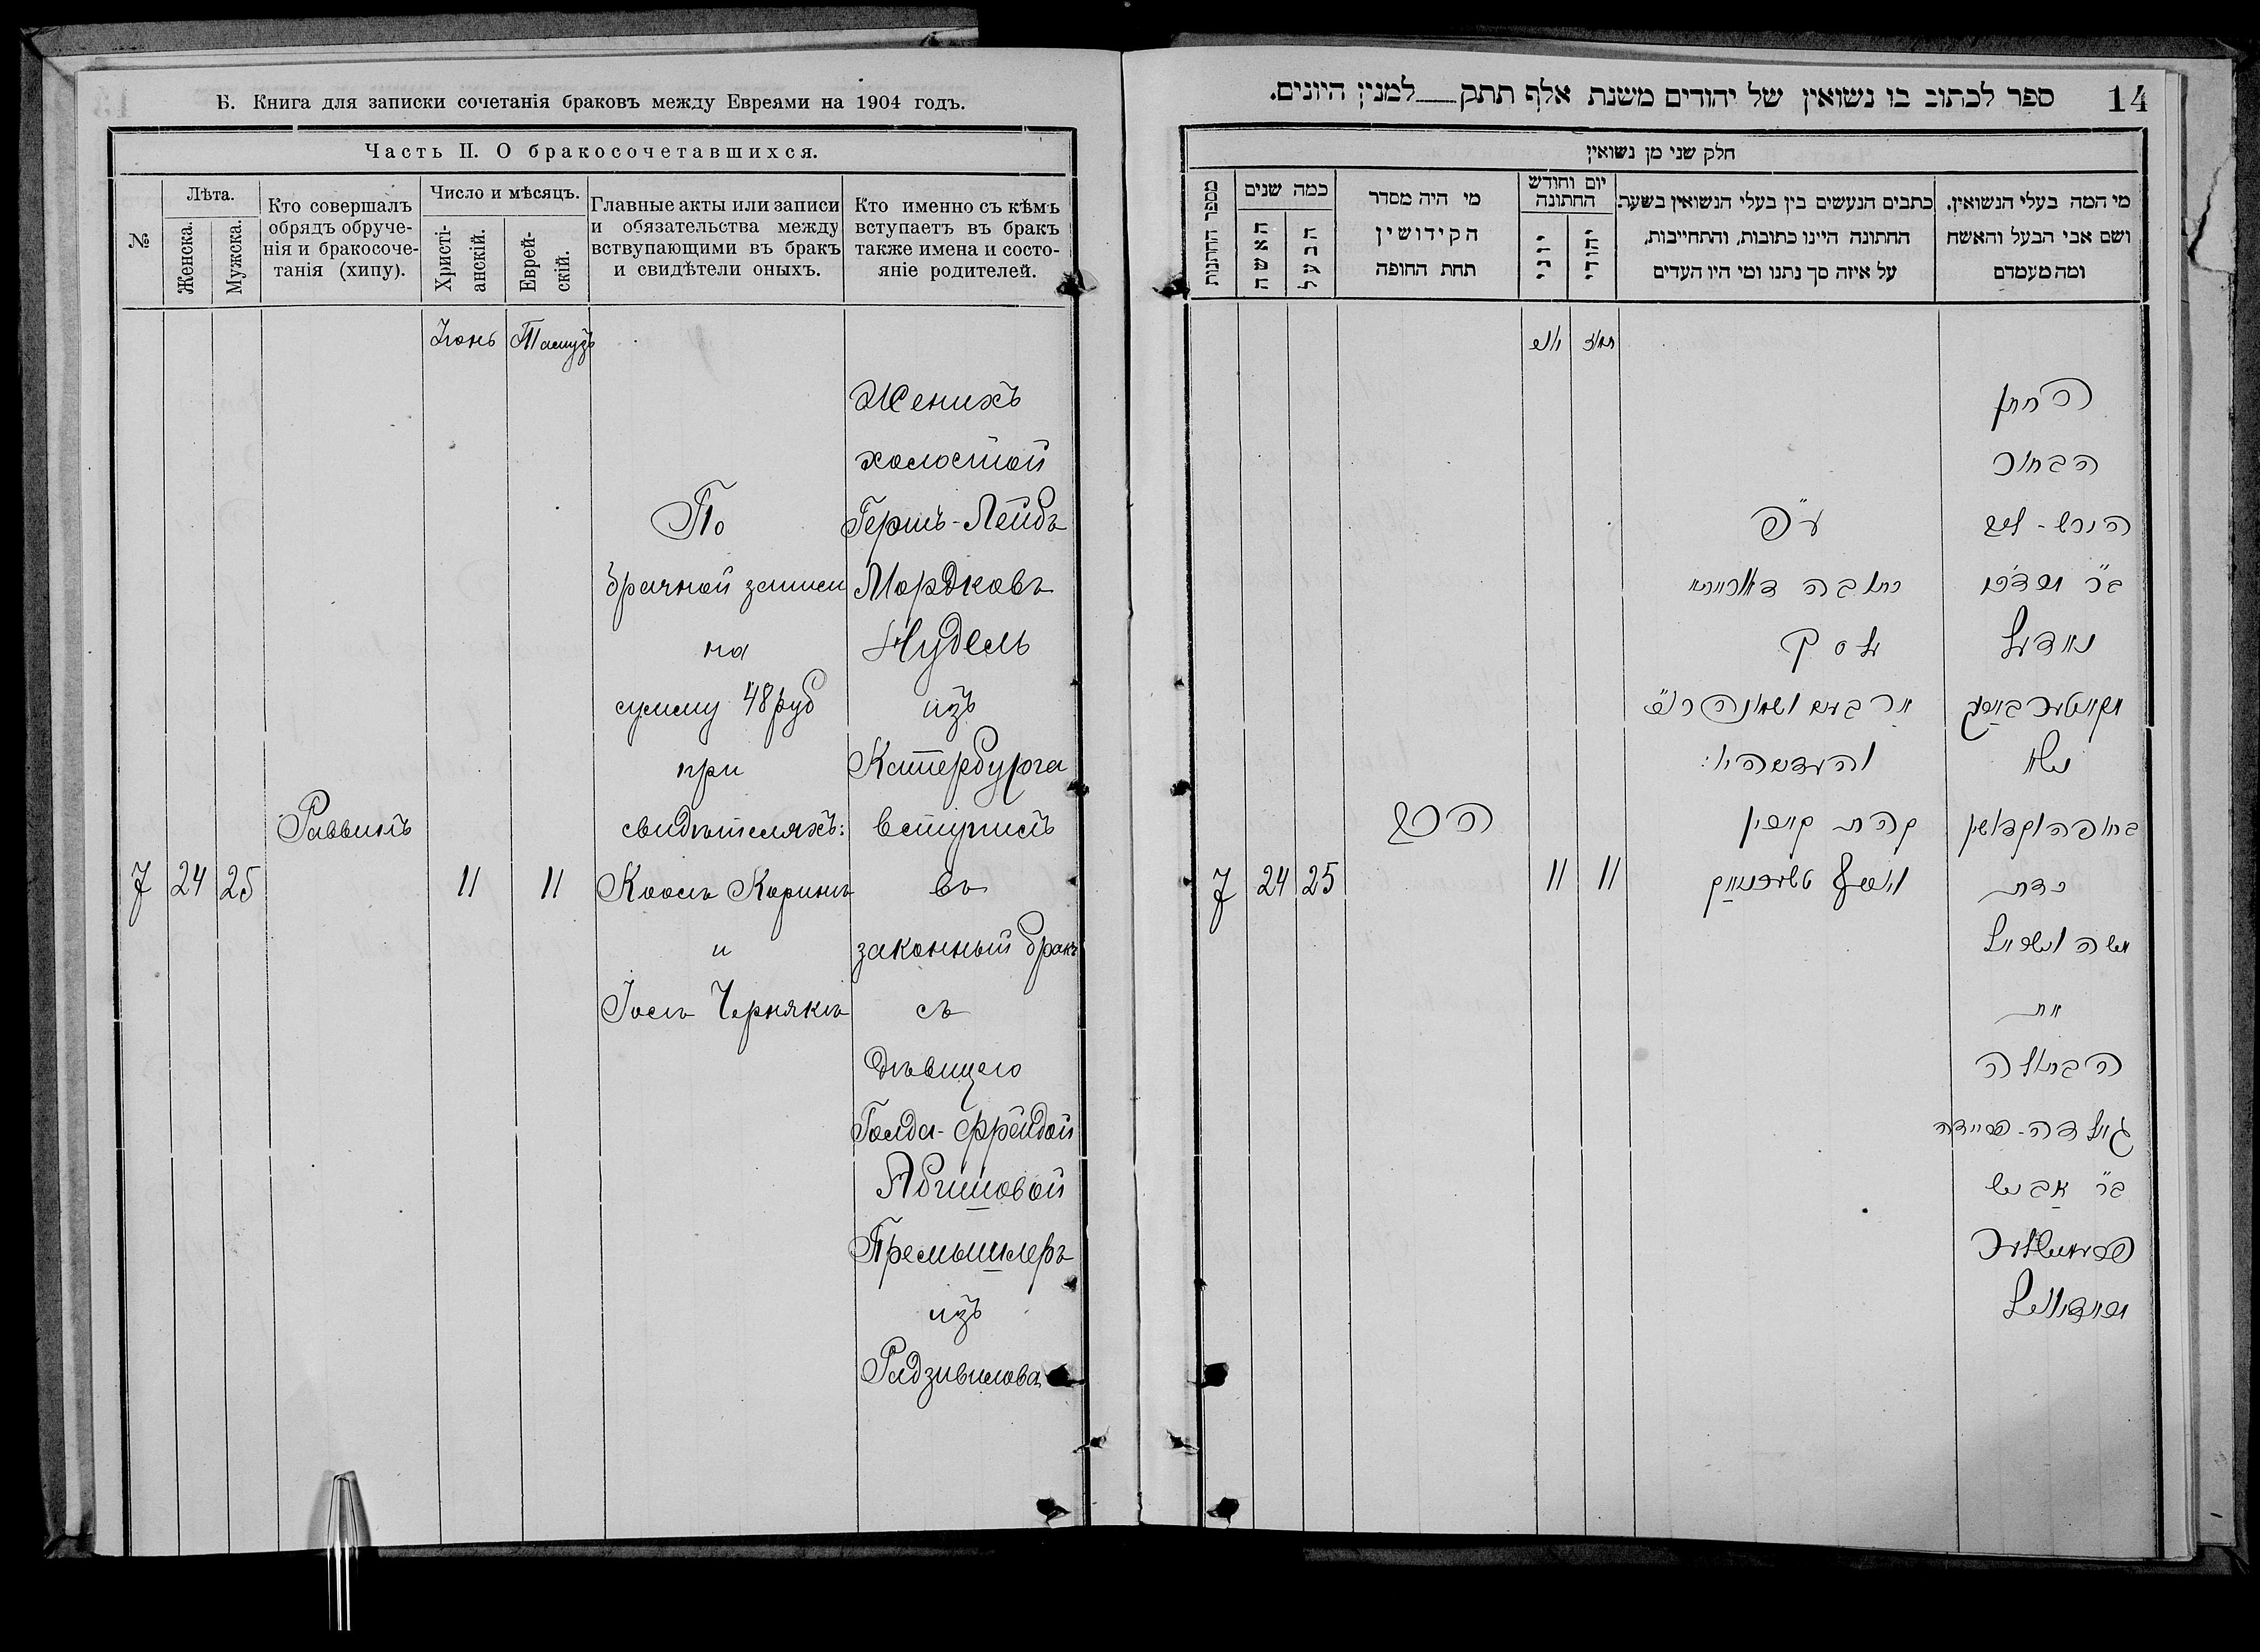 Б. Книга для записки сочетанія браковъ между Евреями на 1904 годъ.
Часть II. О бракосочетавшихся.
№
Лѣта.
Женска.
Мужска.
Кто совершалъ
обрядъ обруче-
нія и бракосоче-
танія (хипу).
Число и мѣсяцъ.
Христі-
анскій.
Еврей-
скій.
Главные акты или записи
и обязательства между
вствупающими въ бракъ
и свидѣтели оныхъ.
Кто именно съ кѣмъ
вступаетъ въ бракъ
также имена и состо-
яніе родителей.
Іюнь
Тамузъ
7
24
25
Раввинъ
11
11
По
брачной записи
на
сумму 48 руб
при
свидѣтеляхъ:
Иосъ Чернякъ
Женихъ
холостой
Гершъ-Лейбъ
Мордковъ
Нудель
изъ
Катербурга
вступилъ
въ
законный бракъ
съ
дѣвицею
Голда-Фрейдой
Премышлеръ
изъ
Радзивилова
14
ספר לכתוב בו נשואין של יהודים משנת אלף תתק למנין היונים.
חלק שני מן נשואין
מספר החתונות
כמה שנים
האשה
הבעל
מי היה מסדר
הקידושין
תחת החופה
יום וחודש
החתונה
יוני
יהודי
כתבים הנעשים בין בעלי הנשואין בשעת
החתונה היינו כתובות, והתחייבות,
על איזה סך נתנו ומי היו העדים
מי המה בעלי הנשואין.
ושם אבי הבעל והאשה
ומה מעמדם
יוני
תמוז
7
24
25
הרב
11
11
ע"פ
כתובה דאורייתא
על סך
ארבעים ושמונה רו"כ
והעדים היו:
החתן
הבחור
הירש-ליב
ב"ר מרדכי
נודעל
נשא
בחופה וקדושין
כדת
משה וישראל
את
הבתולה
גולדה-פריידה
ב"ר אביש
פרעמישלער